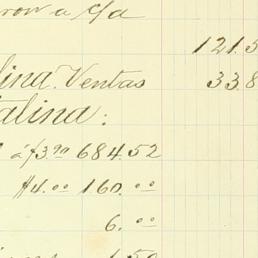 a c/a
121.5
lina. Ventas 33.8
talina:
á $3.90 684.52
$4.00 160.00
6.00
1.50